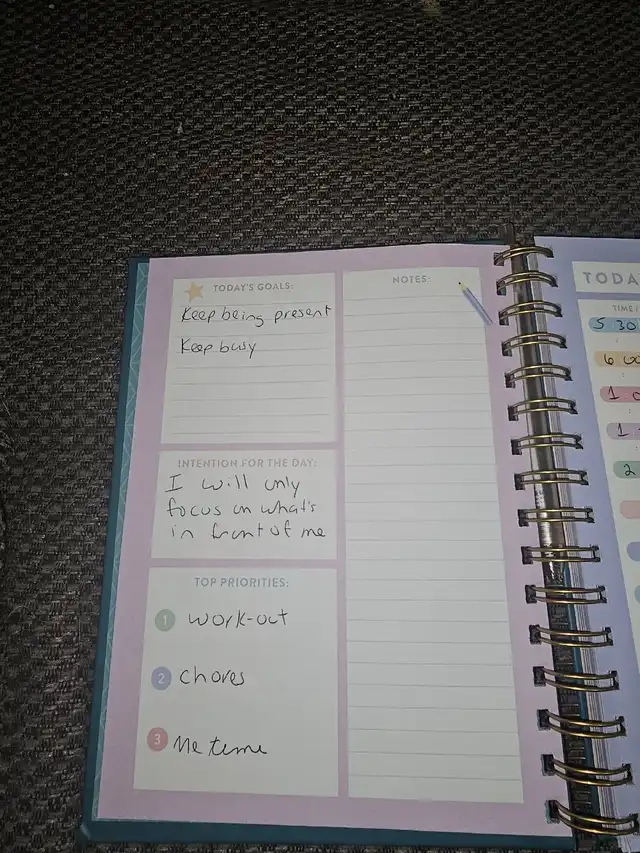 TODAY'S GOALS:
Keep being present
Keep busy
INTENTION FOR THE DAY:
I will only
focus on what's
in front of me
TOP PRIORITIES:
1 work-out
2 chores
3 Me time
NOTES:
TODA
TIME/
5 30
6 00
1
1
2